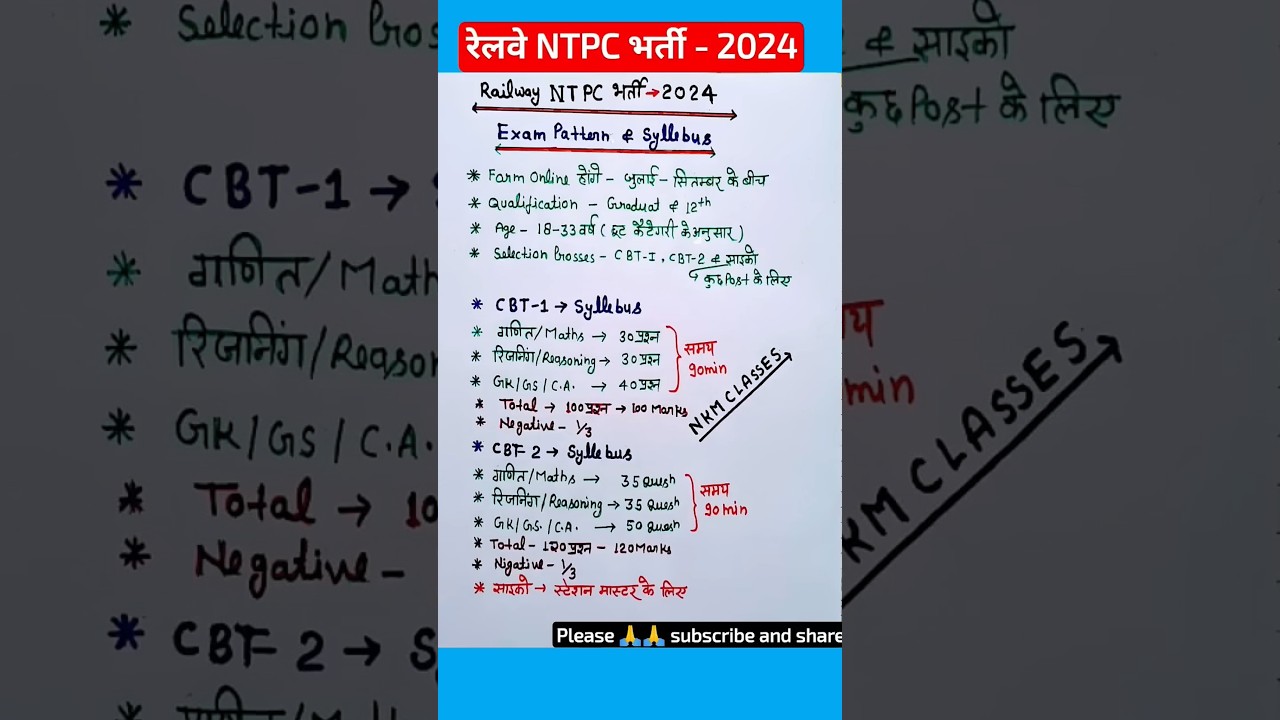 रेलवे NTPC भर्ती - 2024
Railway NTPC भर्ती→2024
Exam Pattern & Syllebus
* Farm Online होंगे - जुलाई - सितम्बर के बीच
* Qualification - Graduat & 12th
* Age - 18-33 वर्ष ( छूट कैटेगरी के अनुसार )
* Selection Prosses - CBT-I, CBT-2 & साइको
↳ कुछ Post के लिए
* CBT-1 → Syllebus
* गणित/Maths → 30 प्रश्न
* रिजनिंग/Reasoning → 30 प्रश्न
* GK/GS/C.A. → 40 प्रश्न
समय
90min
* Total → 100 प्रश्न → 100 Marks
* Negative - 1/3
NKM CLASSES
* CBT-2 → Syllebus
* गणित/Maths → 35 Quesn
* रिजनिंग/Reasoning → 35 Quesn
* GK/GS./C.A. → 50 Quesn
समय
90min
* Total - 120 प्रश्न - 120 Marks
* Nigative - 1/3
* साइको → स्टेशन मास्टर के लिए
Please 🙏🙏 subscribe and share
* Selection Pros
& साइको
कुछ Post के लिए
* CBT-1 →
* गणित/Math
* रिजनिंग/Reason
* GK/GS/C.A.
* Total → 10
* Negative -
* CBT-2 → S
min
KM CLASSES